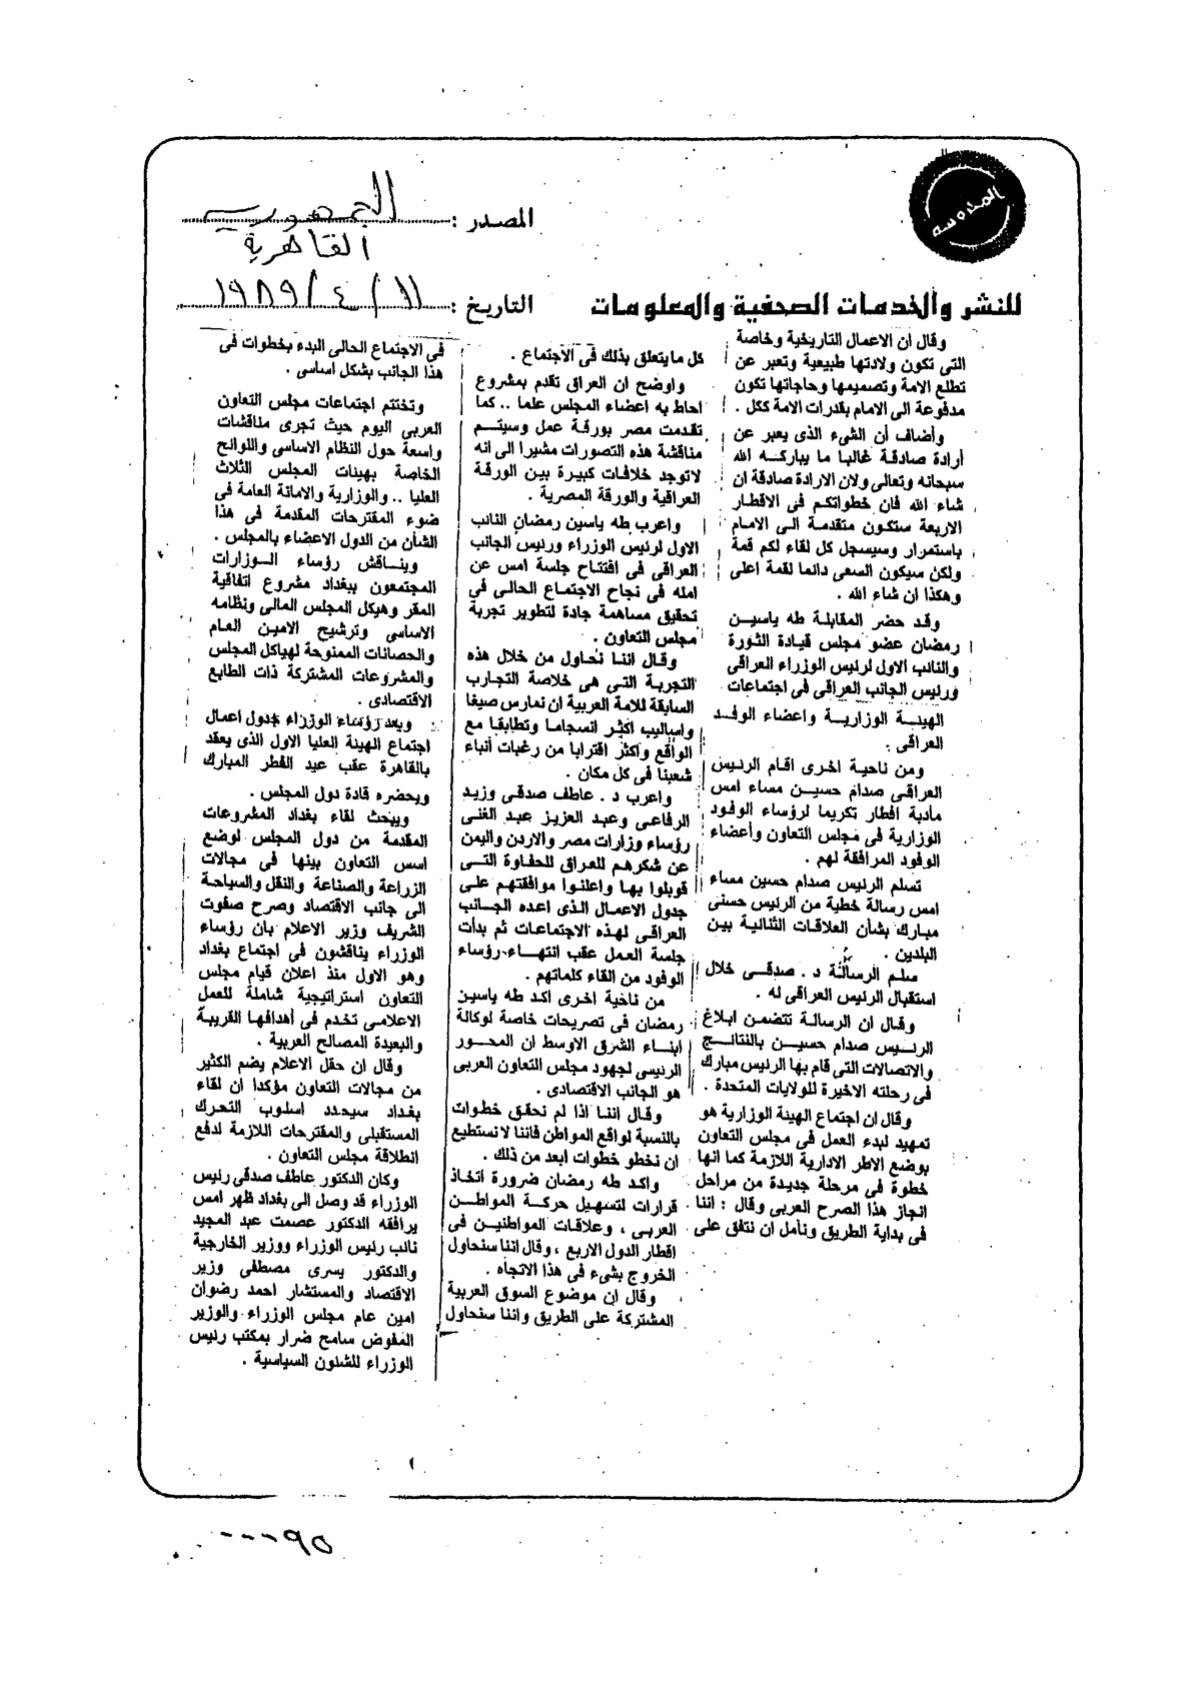 المصدر : الجمهورية
القاهرية
للنشر والخدمات الصحفية والمعلومات
التاريخ : ١١ / ٤ / ١٩٨٩
وقال ان الاعمال التاريخية وخاصة
التى تكون ولادتها طبيعية وتعبر عن
تطلع الامة وتصميمها وحاجاتها تكون
مدفوعة الى الامام بقدرات الامة ككل .
وأضاف أن الشىء الذى يعبر عن
أرادة صادقة غالبا ما يباركه الله
سبحانه وتعالى ولان الارادة صادقة ان
شاء الله فان خطواتكم فى الاقطار
الاربعة ستكون متقدمة الى الامام
باستمرار وسيسجل كل لقاء لكم قمة
ولكن سيكون السعى دائما لقمة اعلى
وهكذا ان شاء الله .
وقد حضر المقابلة طه ياسين
رمضان عضو مجلس قيادة الثورة
والنائب الاول لرئيس الوزراء العراقى
ورئيس الجانب العراقى فى اجتماعات
الهيئة الوزارية واعضاء الوفد
العراقى .
ومن ناحية اخرى اقام الرئيس
العراقى صدام حسين مساء امس
مادبة افطار تكريما لرؤساء الوفود
الوزارية فى مجلس التعاون وأعضاء
الوفود المرافقة لهم .
تسلم الرئيس صدام حسين مساء
امس رسالة خطية من الرئيس حسنى
مبارك بشأن العلاقات الثنائية بين
البلدين .
سلم الرسالة د . صدقى خلال
استقبال الرئيس العراقى له .
وقال ان الرسالة تتضمن ابلاغ
الرئيس صدام حسين بالنتائج
والاتصالات التى قام بها الرئيس مبارك
فى رحلته الاخيرة للولايات المتحدة .
وقال ان اجتماع الهيئة الوزارية هو
تمهيد لبدء العمل فى مجلس التعاون
بوضع الاطر الادارية اللازمة كما انها
خطوة فى مرحلة جديدة من مراحل
انجاز هذا الصرح العربى وقال : اننا
فى بداية الطريق ونأمل ان نتفق على
كل ما يتعلق بذلك فى الاجتماع .
واوضح ان العراق تقدم بمشروع
احاط به اعضاء المجلس علما .. كما
تقدمت مصر بورقة عمل وسيتم
مناقشة هذه التصورات مشيرا الى انه
لا توجد خلافات كبيرة بين الورقة
العراقية والورقة المصرية .
واعرب طه ياسين رمضان النائب
الاول لرئيس الوزراء ورئيس الجانب
العراقى فى افتتاح جلسة امس عن
امله فى نجاح الاجتماع الحالى فى
تحقيق مساهمة جادة لتطوير تجربة
مجلس التعاون .
وقال اننا نحاول من خلال هذه
التجربة التى هى خلاصة التجارب
السابقة للامة العربية ان نمارس صيغا
واساليب اكثر انسجاما وتطابقا مع
الواقع واكثر اقترابا من رغبات أنباء
شعبنا فى كل مكان .
واعرب د . عاطف صدقى وزيد
الرفاعى وعبد العزيز عبد الغنى
رؤساء وزارات مصر والاردن واليمن
عن شكرهم للعراق للحفاوة التى
قوبلوا بها واعلنوا موافقتهم على
جدول الاعمال الذى اعده الجانب
العراقى لهذه الاجتماعات ثم بدأت
جلسة العمل عقب انتهاء رؤساء
الوفود من القاء كلماتهم .
من ناحية اخرى اكد طه ياسين
رمضان فى تصريحات خاصة لوكالة
ابناء الشرق الاوسط ان المحور
الرئيسى لجهود مجلس التعاون العربى
هو الجانب الاقتصادى .
وقال اننا اذا لم نحقق خطوات
بالنسبة لواقع المواطن فاننا لا نستطيع
ان نخطو خطوات ابعد من ذلك .
واكد طه رمضان ضرورة اتخاذ
قرارات لتسهيل حركة المواطن
العربى ، وعلاقات المواطنين فى
اقطار الدول الاربع ، وقال اننا سنحاول
الخروج بشىء فى هذا الاتجاه .
وقال إن موضوع السوق العربية
المشتركة على الطريق واننا سنحاول
فى الاجتماع الحالى البدء بخطوات فى
هذا الجانب بشكل اساسى .
وتختتم اجتماعات مجلس التعاون
العربى اليوم حيث تجرى مناقشات
واسعة حول النظام الاساسى واللوائح
الخاصة بهيئات المجلس الثلاث
العليا .. والوزارية والامانة العامة فى
ضوء المقترحات المقدمة فى هذا
الشأن من الدول الاعضاء بالمجلس .
ويناقش رؤساء الوزارات
المجتمعون ببغداد مشروع اتفاقية
المقر وهيكل المجلس المالى ونظامه
الاساسى وترشيح الامين العام
والحصانات الممنوحة لهياكل المجلس
والمشروعات المشتركة ذات الطابع
الاقتصادى .
ويعد رؤساء الوزراء جدول اعمال
اجتماع الهيئة العليا الاول الذى يعقد
بالقاهرة عقب عيد الفطر المبارك
ويحضره قادة دول المجلس .
ويبحث لقاء بغداد المشروعات
المقدمة من دول المجلس لوضع
اسس التعاون بينها فى مجالات
الزراعة والصناعة والنقل والسياحة
الى جانب الاقتصاد وصرح صفوت
الشريف وزير الاعلام بان رؤساء
الوزراء يناقشون فى اجتماع بغداد
وهو الاول منذ اعلان قيام مجلس
التعاون استراتيجية شاملة للعمل
الاعلامى تخدم فى أهدافها القريبة
والبعيدة المصالح العربية .
وقال ان حقل الاعلام يضم الكثير
من مجالات التعاون مؤكدا ان لقاء
بغداد سيحدد اسلوب التحرك
المستقبلى والمقترحات اللازمة لدفع
انطلاقة مجلس التعاون .
وكان الدكتور عاطف صدقى رئيس
الوزراء قد وصل الى بغداد ظهر امس
يرافقه الدكتور عصمت عبد المجيد
نائب رئيس الوزراء ووزير الخارجية
والدكتور يسرى مصطفى وزير
الاقتصاد والمستشار احمد رضوان
امين عام مجلس الوزراء والوزير
المفوض سامح ضرار بمكتب رئيس
الوزراء للشئون السياسية .